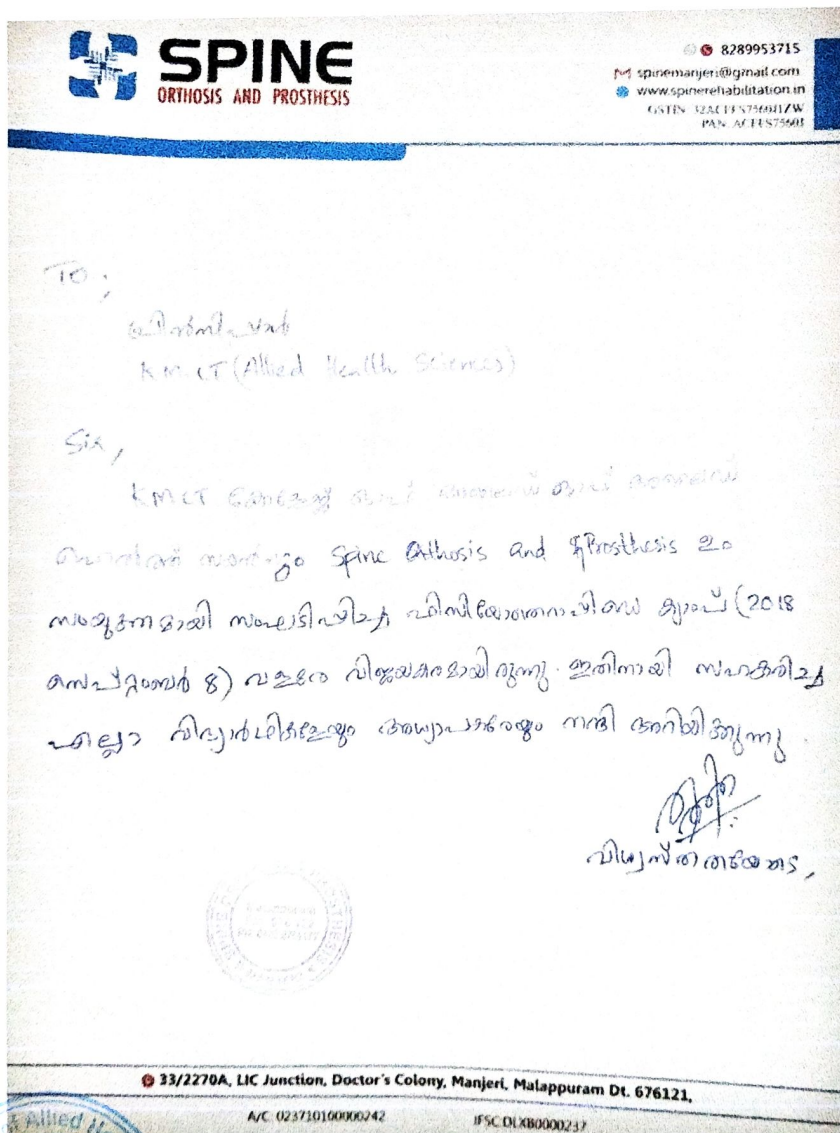 SPINE
ORTHOSIS AND PROSTHESIS
8289953715
spinemanjeri@gmail.com
www.spinerehabilitation.in
GSTIN
PAN
To ;
പ്രിൻസിപ്പാൾ
KMCT (Allied Health Sciences)
Sir,
KMCT കോളേജ് ഓഫ് അലൈഡ് ഓഫ് അലൈഡ്
ഹെൽത്ത് സയൻസും Spine Othosis and Prosthesis ഉം
സംയുക്തമായി സംഘടിപ്പിച്ച ഫിസിയോതെറാപ്പി ക്യാംപ് (2018
സെപ്റ്റംബർ 8) വളരെ വിജയകരമായിരുന്നു. ഇതിനായി സഹകരിച്ച
എല്ലാ വിദ്യാർഥികളേയും അധ്യാപകരേയും നന്ദി അറിയിക്കുന്നു.
വിശ്വസ്തതയോടെ,
33/2270A, LIC Junction, Doctor's Colony, Manjeri, Malappuram Dt. 676121,
A/C 023710100000242 IFSC:DLXB0000237
Allied